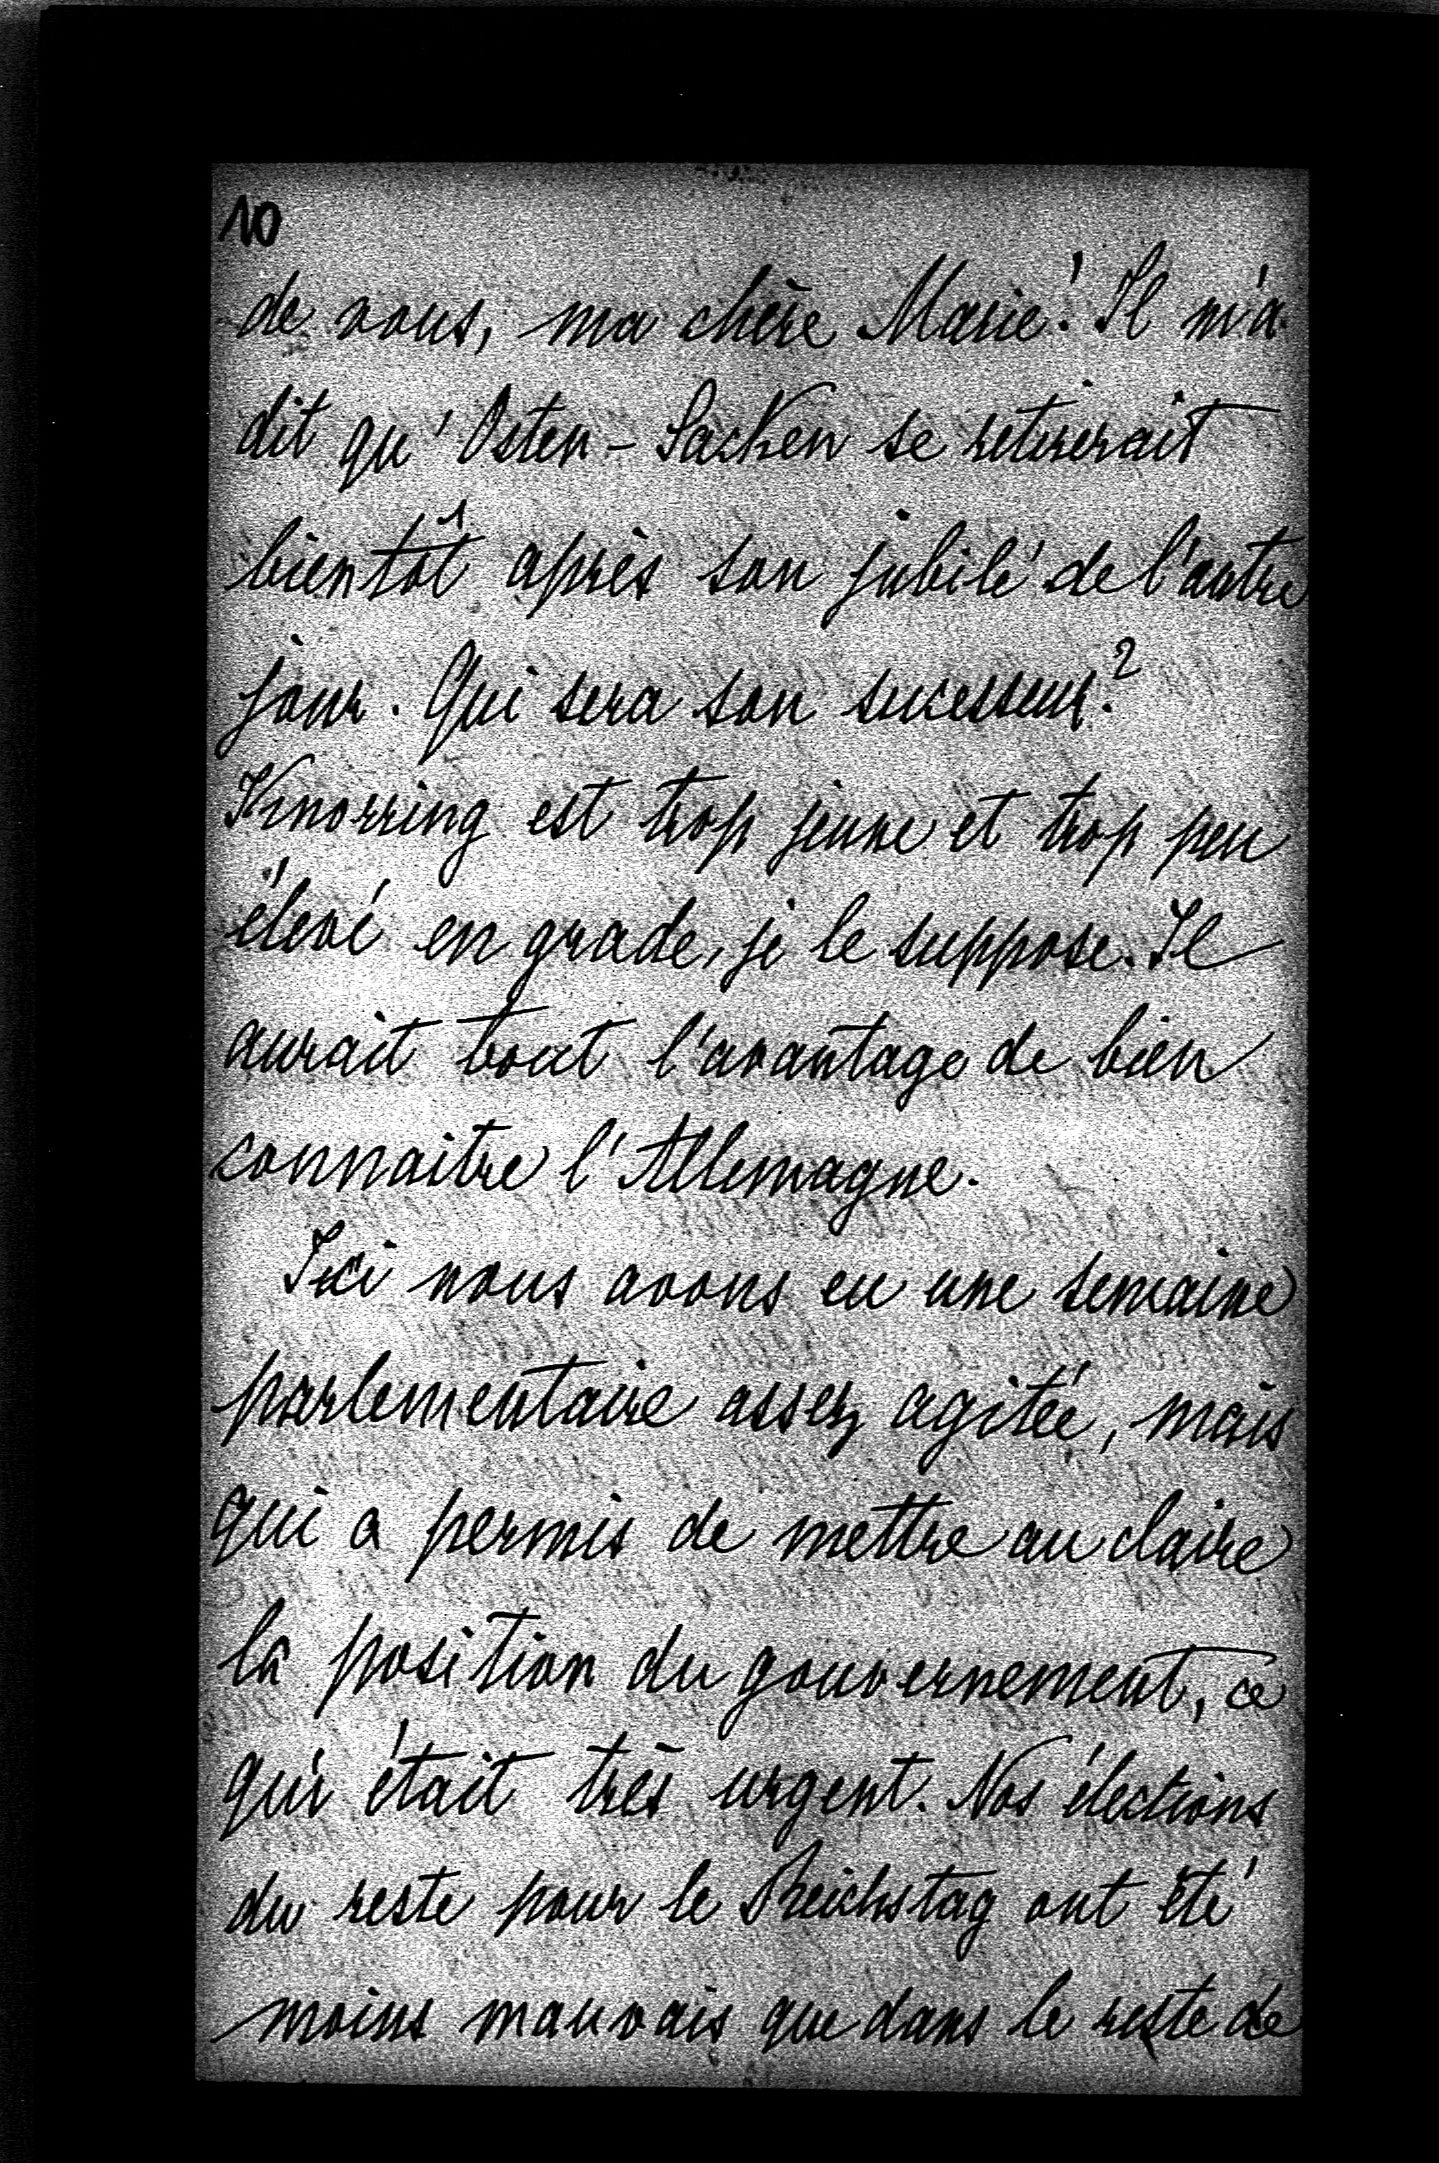 10
de vous, ma chère Marie! Il m'a
dit qu'Osten-Sacken se retirerait
bientôt après son jubilé de l'autre
jour. Qui sera son sucesseur?
Knorring est trop jeune et trop peu
élevé en grade, je le suppose. Il
aurait tout l'avantage de bien
connaitre l'Allemagne.
Ici nous avons eu une semaine
parlementaire assez agitée, mais
qui a permis de mettre au claire
la position du gouvernement, ce
qui était très urgent. Nos élections
du reste pour le Reichstag ont été
moins mauvais que dans le reste de